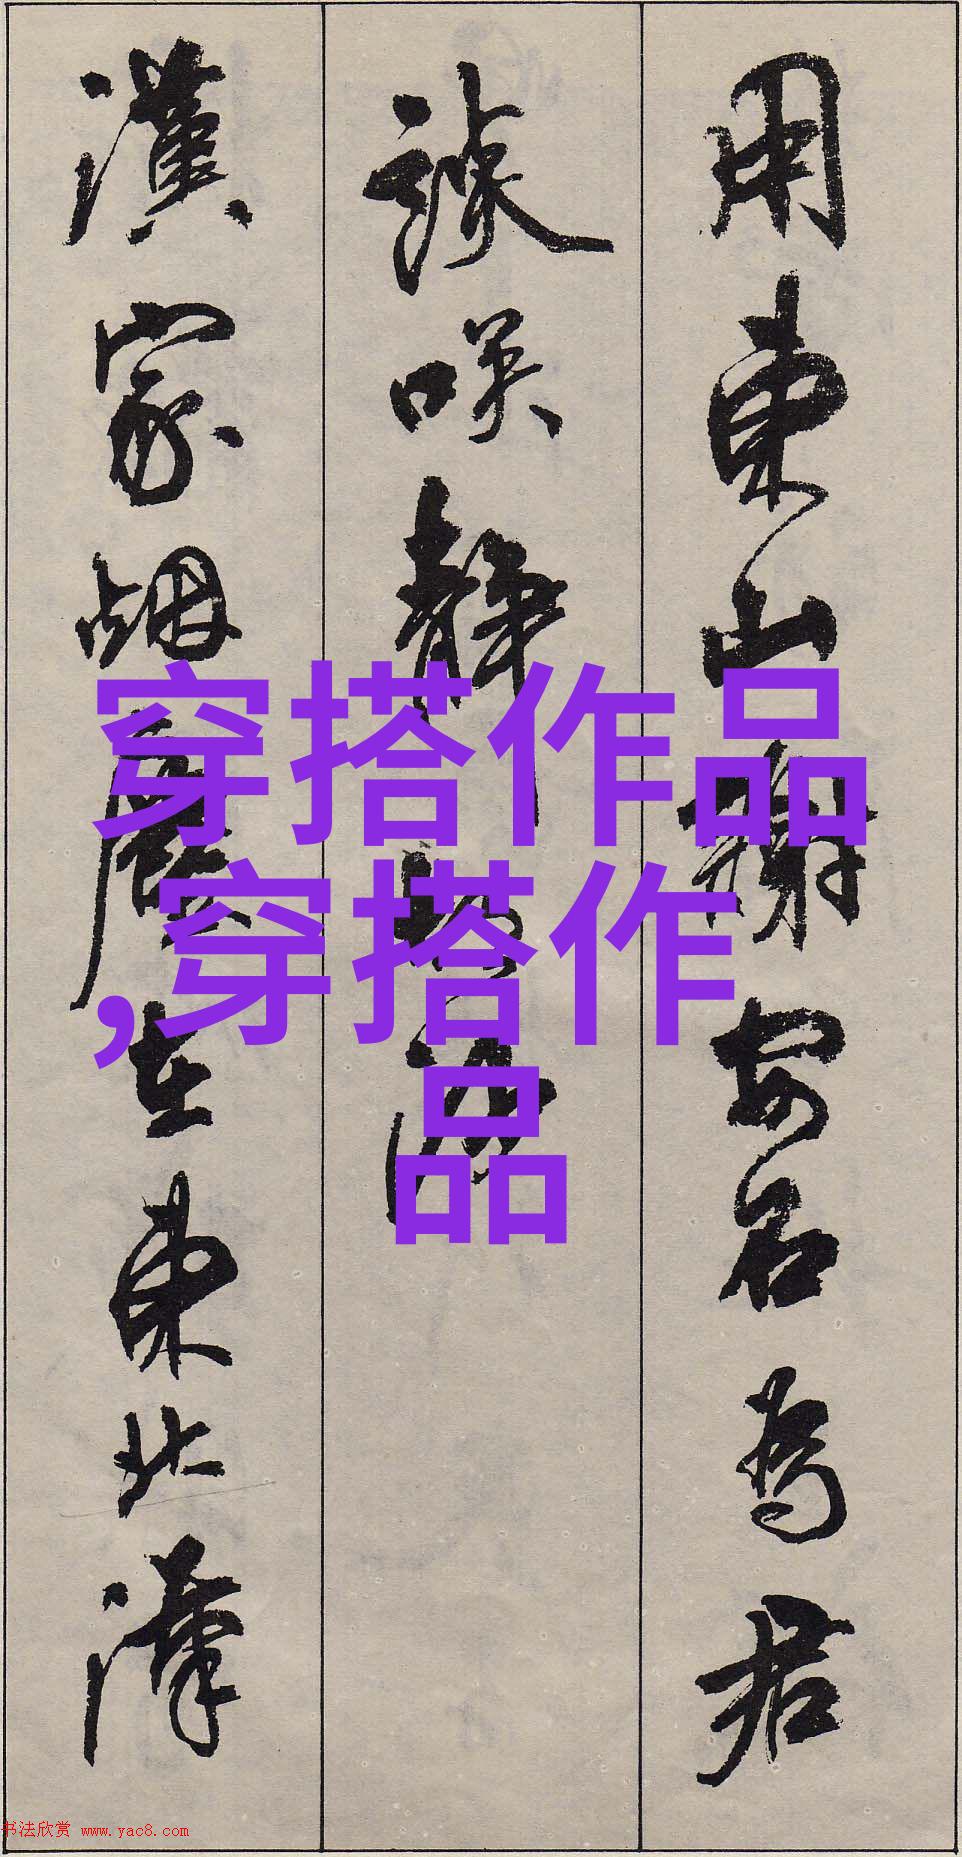 用東山謝安石為君
談咲靜胡沙
漢家烟塵在東北漢
穿搭作品
,穿搭作
品
书法欣赏 www.yac8.com